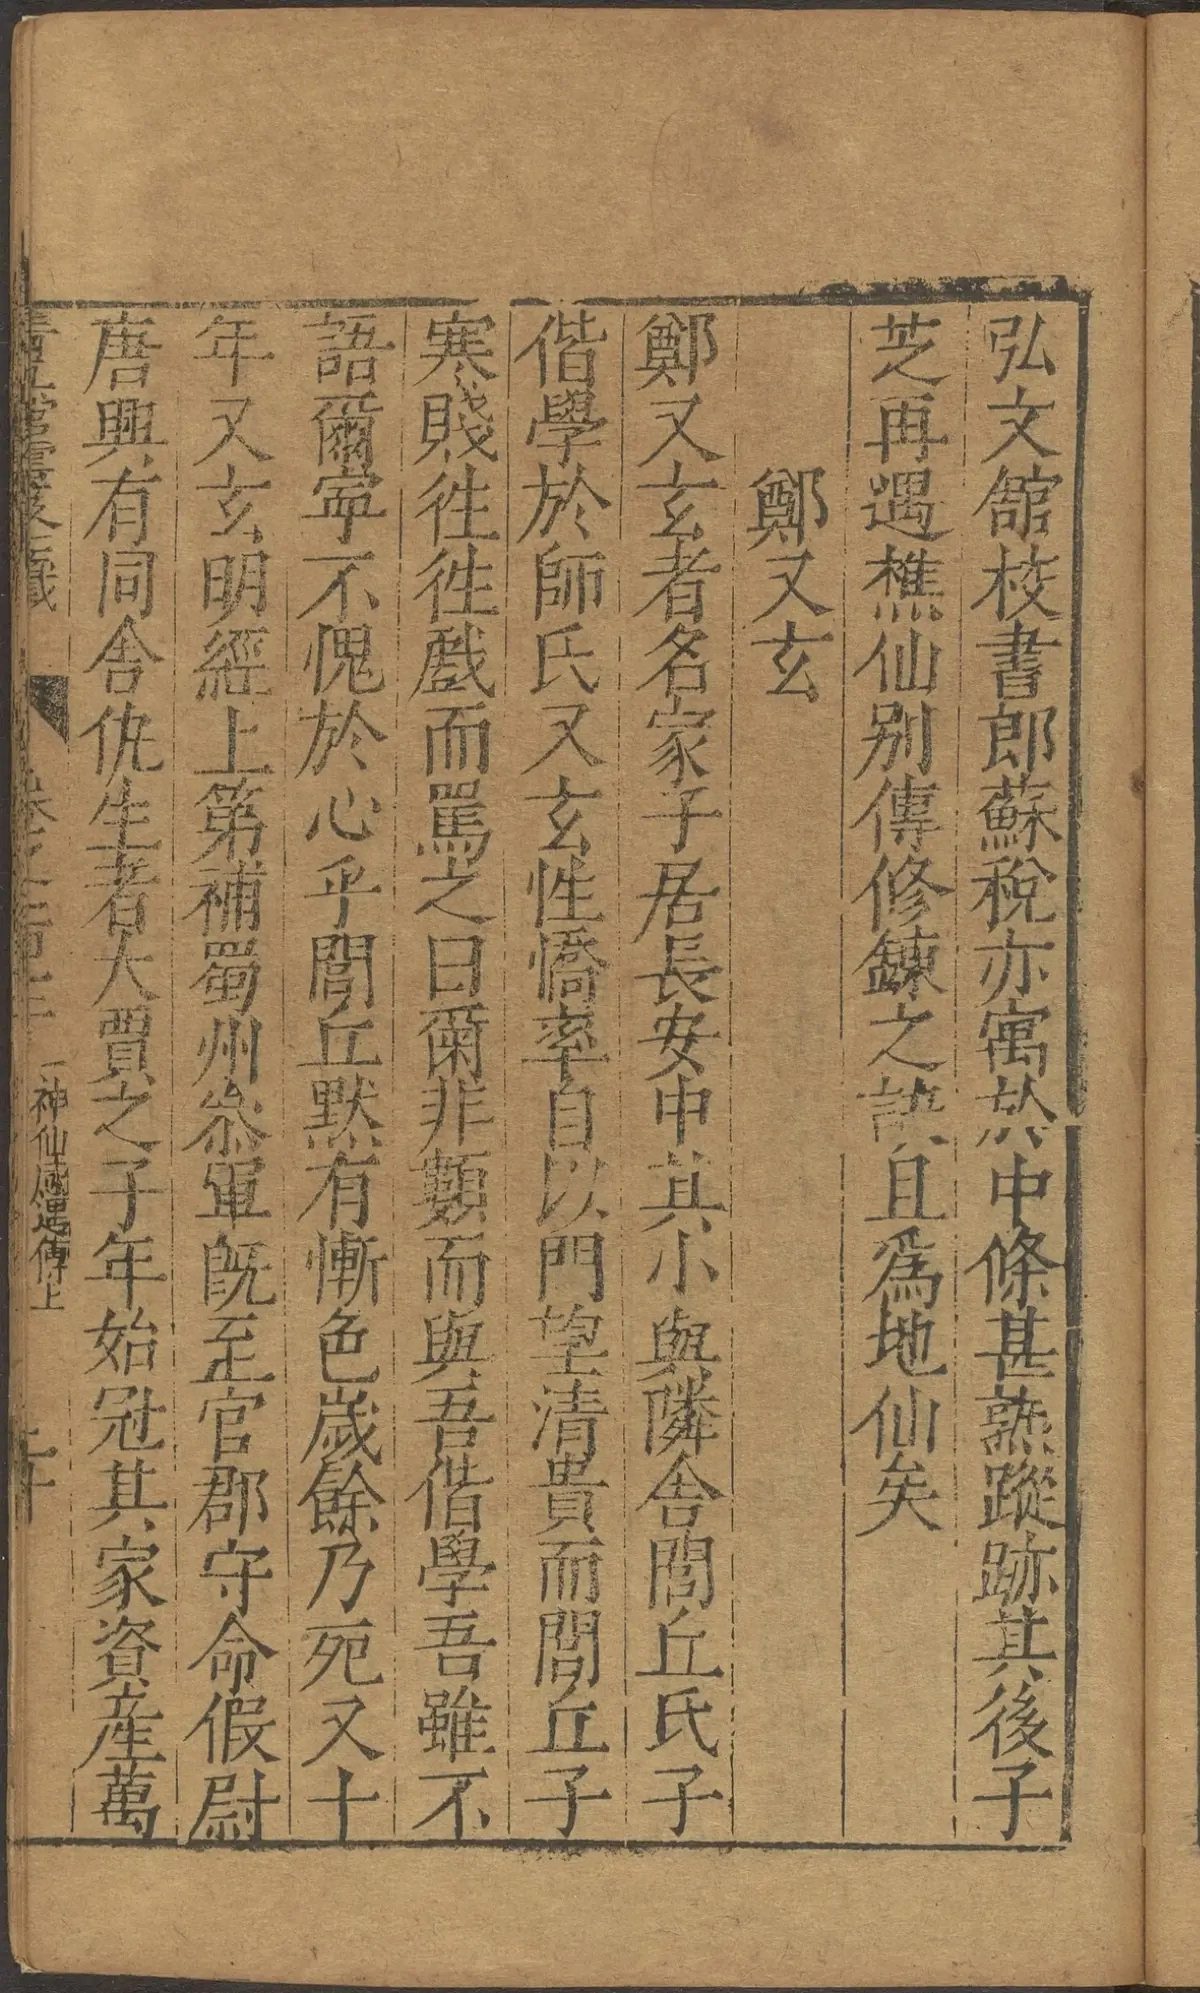 弘文館校書郎蘇稅亦寓於中條甚熟蹤跡其後子
芝再遇樵仙別傳修鍊之訣且爲地仙矣
鄭又玄
鄭又玄者名家子居長安中其小與隣舍閭丘氏子
偕學於師氏又玄性憍率自以門望清貴而閭丘子
寒賤徃徃戲而罵之曰爾非類而與吾偕學吾雖不
語爾寧不愧於心乎閭丘默有慚色歲餘乃死又十
年又玄明經上第補蜀州叅軍旣至官郡守命假尉
唐興有同舍仇生者大賈之子年始冠其家資産萬
神仙感遇傳上